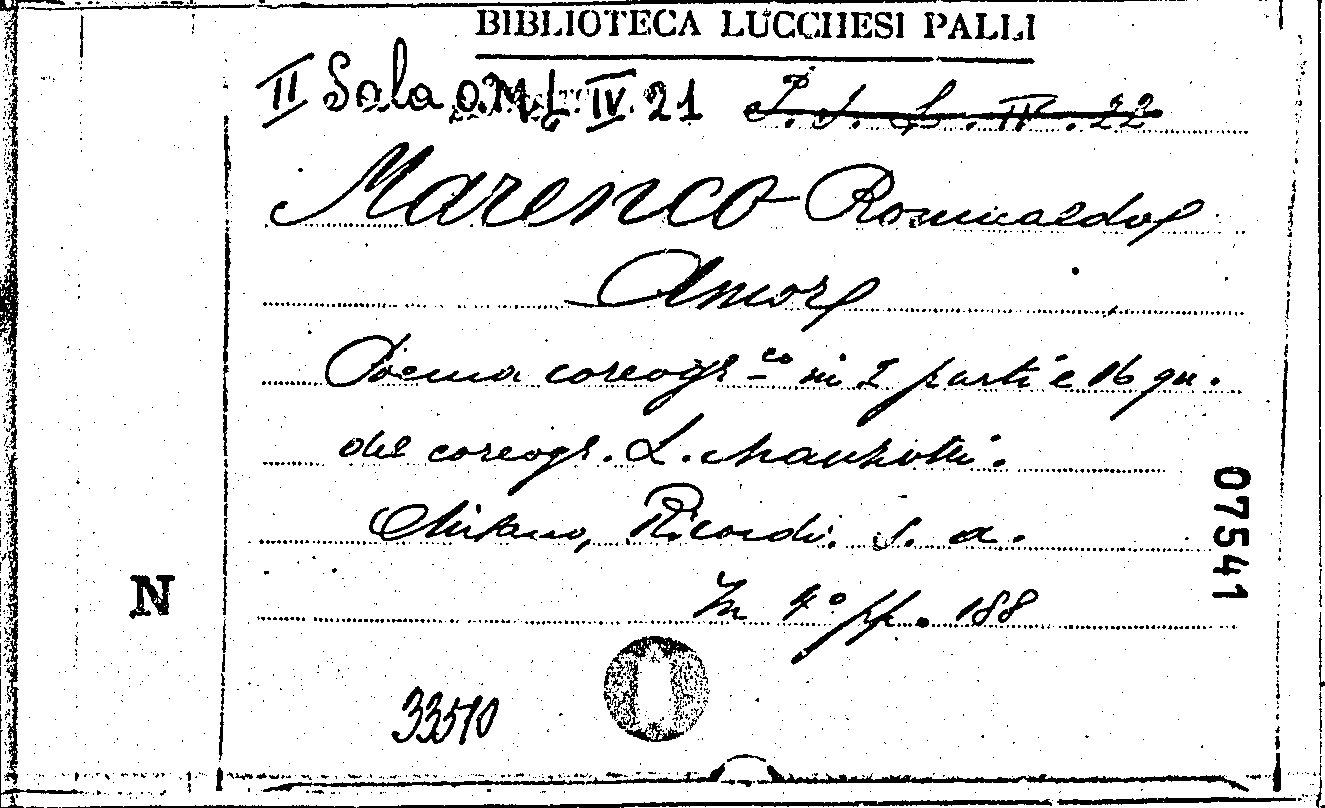 BIBLIOTECA LUCCHESI PALLI
II Sala O.M.L. IV. 21 P. S. L. IV. 22
Marenco Romualdo
Amore
Poema coreogr.co in 2 parti e 16 qu.
del coreogr. L. Manzotti.
Milano, Ricordi. S. a.
In 4° pp. 188
07541
N
33510